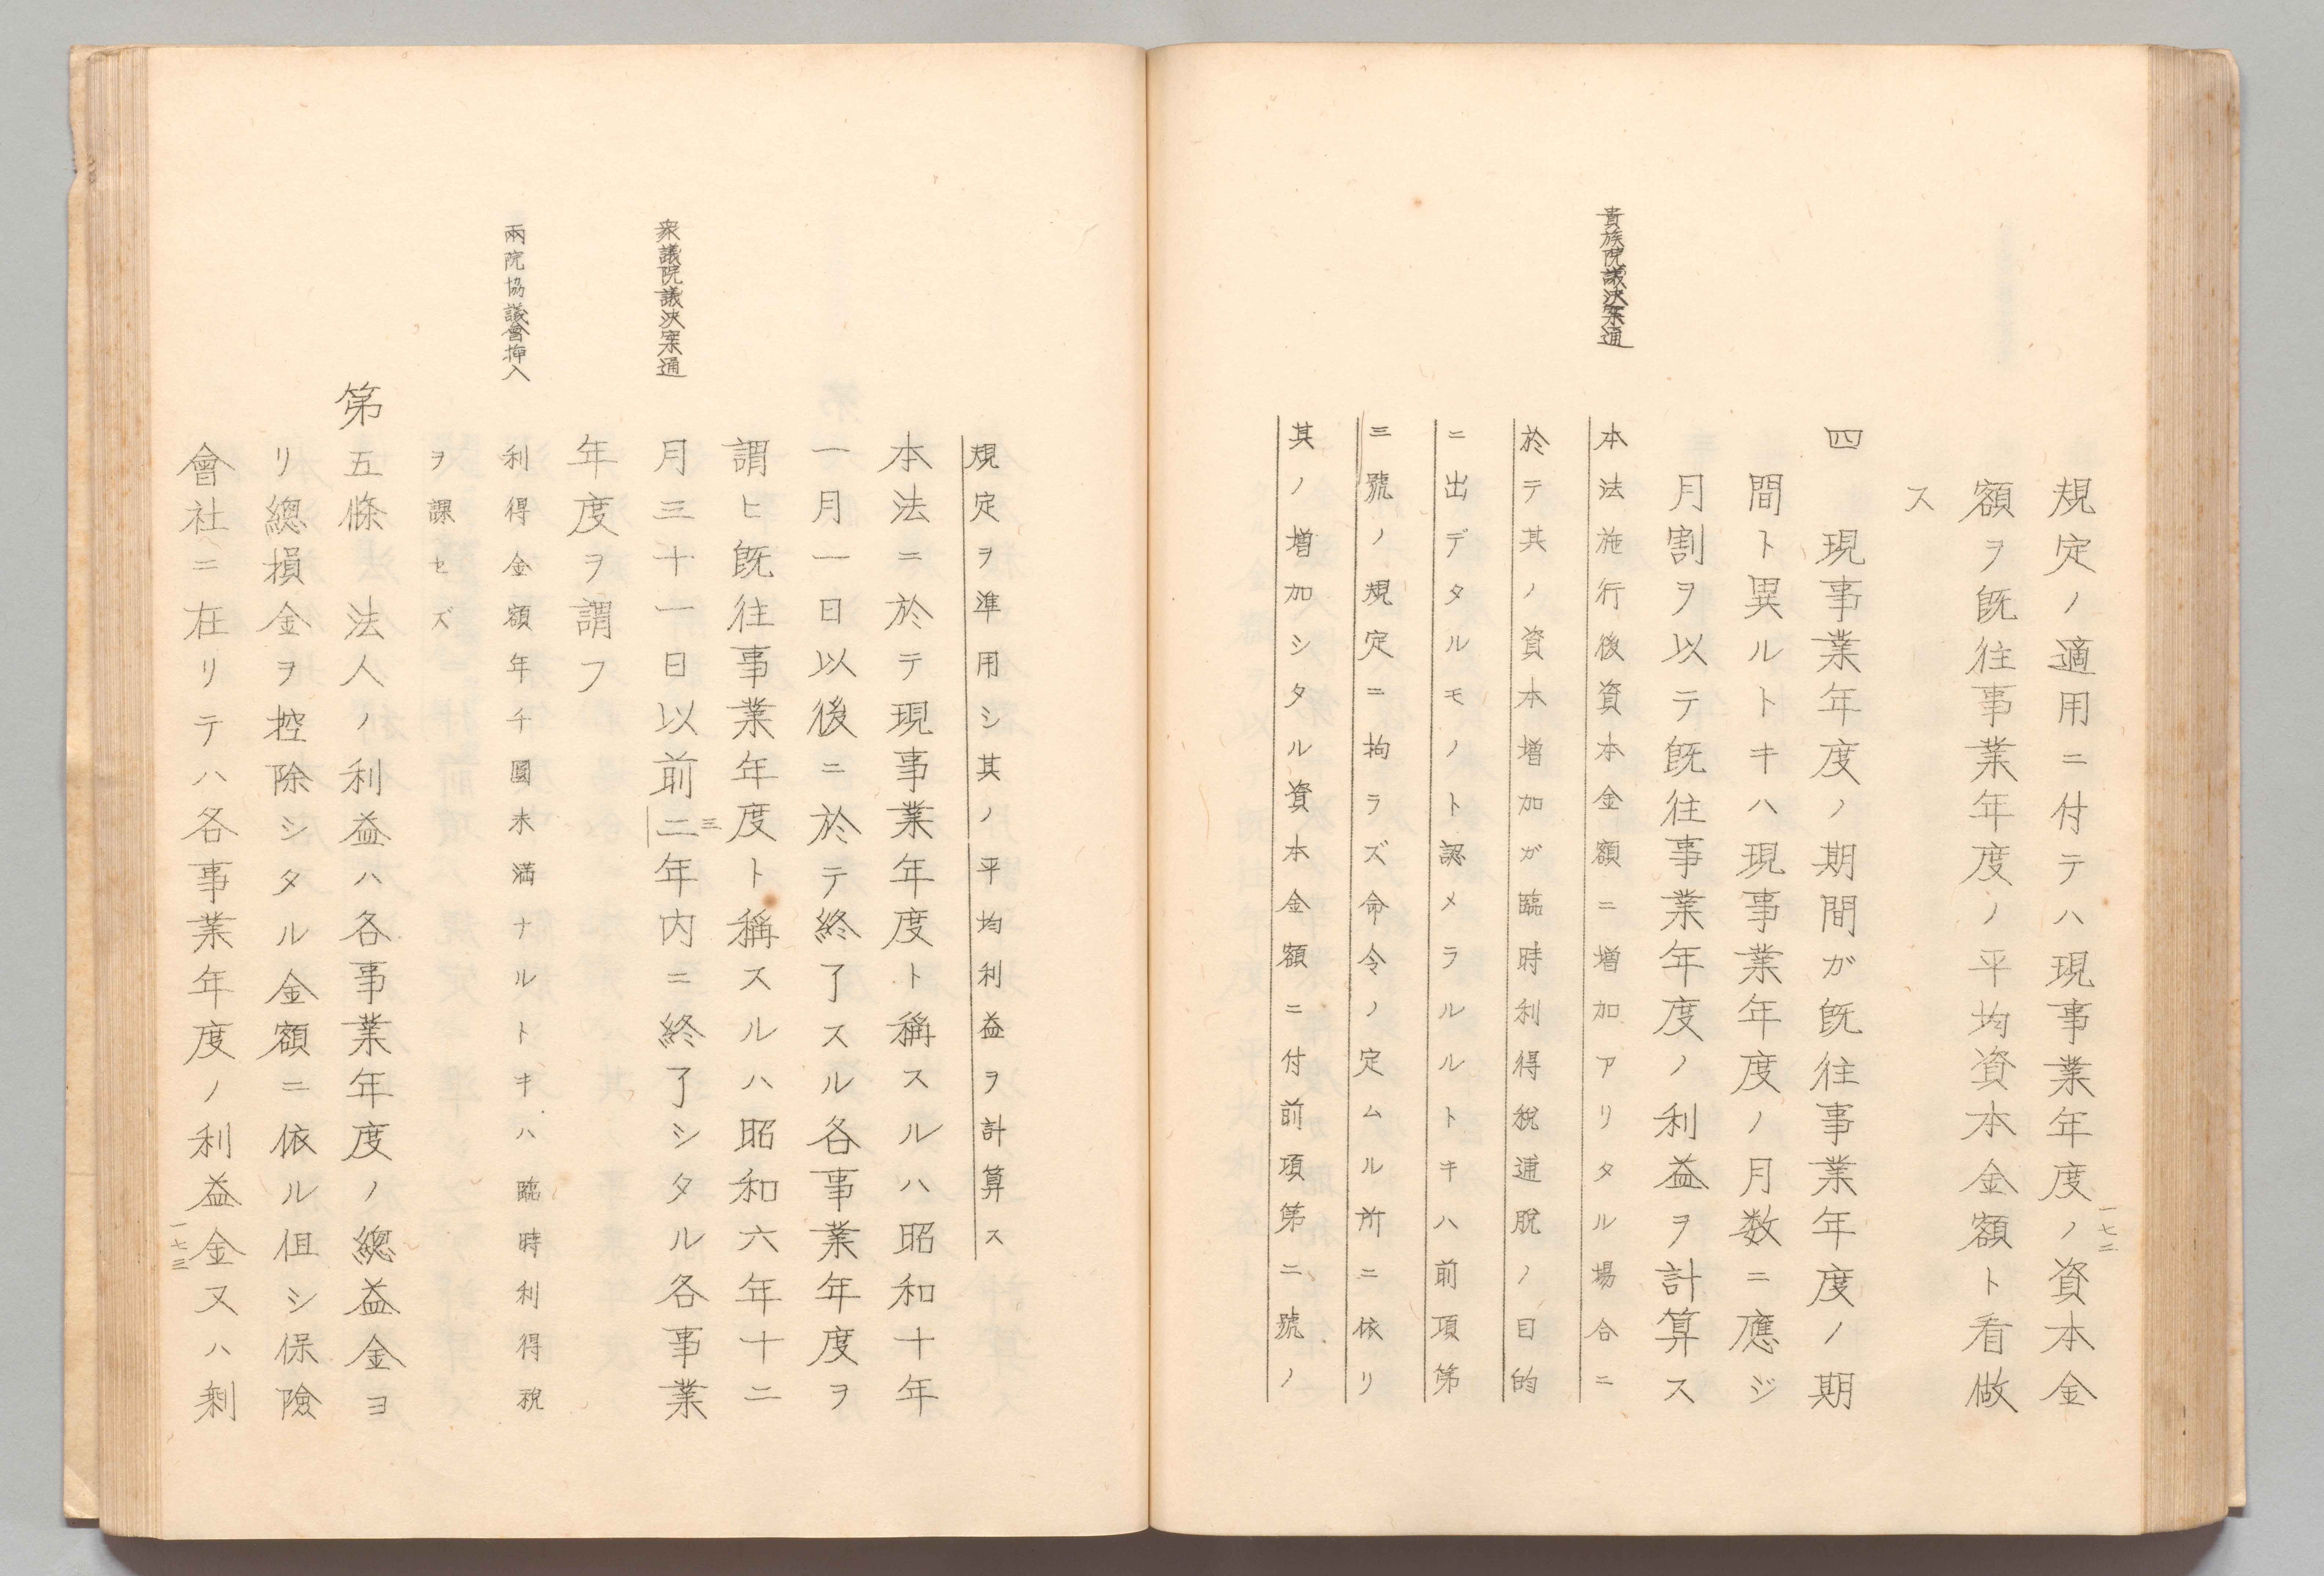 規定ノ適用ニ付テハ現事業年度ノ資本金
額ヲ既往事業年度ノ平均資本金額ト看做
ス
四 現事業年度ノ期間ガ既往事業年度ノ期
間ト異ルトキハ現事業年度ノ月数ニ應ジ
月割ヲ以テ既往事業年度ノ利益ヲ計算ス
貴族院議決案通
本法施行後資本金額ニ増加アリタル場合ニ
於テ其ノ資本増加ガ臨時利得税逋脱ノ目的
ニ出デタルモノト認メラルルトキハ前項第
三號ノ規定ニ拘ラズ命令ノ定ムル所ニ依リ
其ノ増加シタル資本金額ニ付前項第二號ノ
一七二
規定ヲ準用シ其ノ平均利益ヲ計算ス
本法ニ於テ現事業年度ト稱スルハ昭和十年
一月一日以後ニ於テ終了スル各事業年度ヲ
謂ヒ既往事業年度ト稱スルハ昭和六年十二
衆議院議決案通
三
月三十一日以前二年内ニ終了シタル各事業
年度ヲ謂フ
兩院協議會挿入
利得金額年千圓未満ナルトキハ臨時利得税
ヲ課セズ
第五條 法人ノ利益ハ各事業年度ノ總益金ヨ
リ總損金ヲ控除シタル金額ニ依ル但シ保險
會社ニ在リテハ各事業年度ノ利益金又ハ剰
一七三